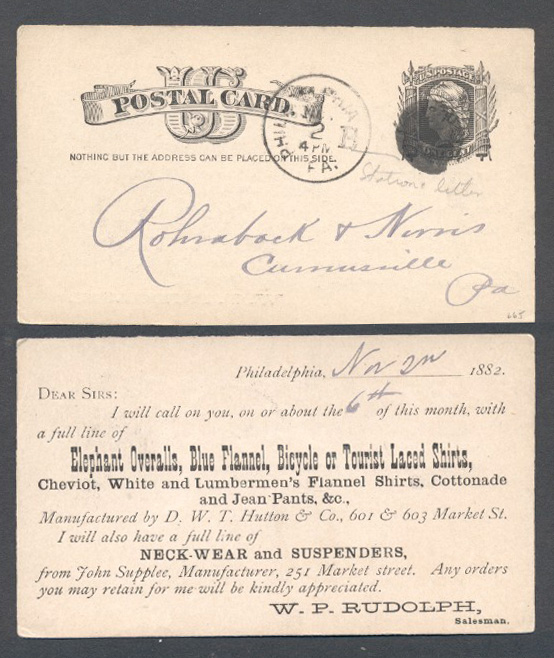 US
POSTAL CARD.
U.S. POSTAGE
NOTHING BUT THE ADDRESS CAN BE PLACED ON THIS SIDE.
PHILADELPHIA
2
4 PM
PA.
E
letter
Rohraback & Nerris
Cumusville
Pa
665
Philadelphia, Nov 2nd 1882.
DEAR SIRS:
I will call on you, on or about the 6th of this month, with
a full line of
Elephant Overalls, Blue Flannel, Bicycle or Tourist Laced Shirts,
Cheviot, White and Lumbermen's Flannel Shirts, Cottonade
and Jean Pants, &c.,
Manufactured by D. W. T. Hutton & Co., 601 & 603 Market St.
I will also have a full line of
NECK-WEAR and SUSPENDERS,
from John Supplee, Manufacturer, 251 Market street. Any orders
you may retain for me will be kindly appreciated.
W. P. RUDOLPH,
Salesman.